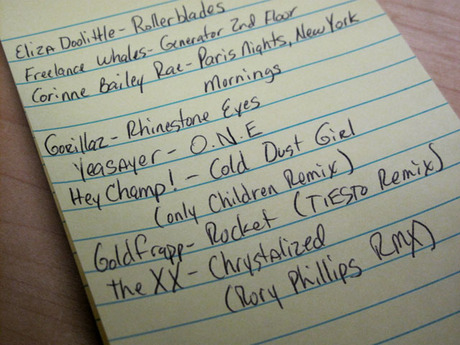 Eliza Doolittle- Rollerblades
Freelance Whales- Generator 2nd Floor
Corinne Bailey Rae- Paris Nights, New York
Mornings
Gorillaz- Rhinestone Eyes
Yeasayer- O.N.E
Hey Champ! - Cold Dust Girl
(only Children Remix)
Goldfrapp- Rocket (TIESTO Remix)
the XX- Chrystalized
(Rory Phillips RMX)